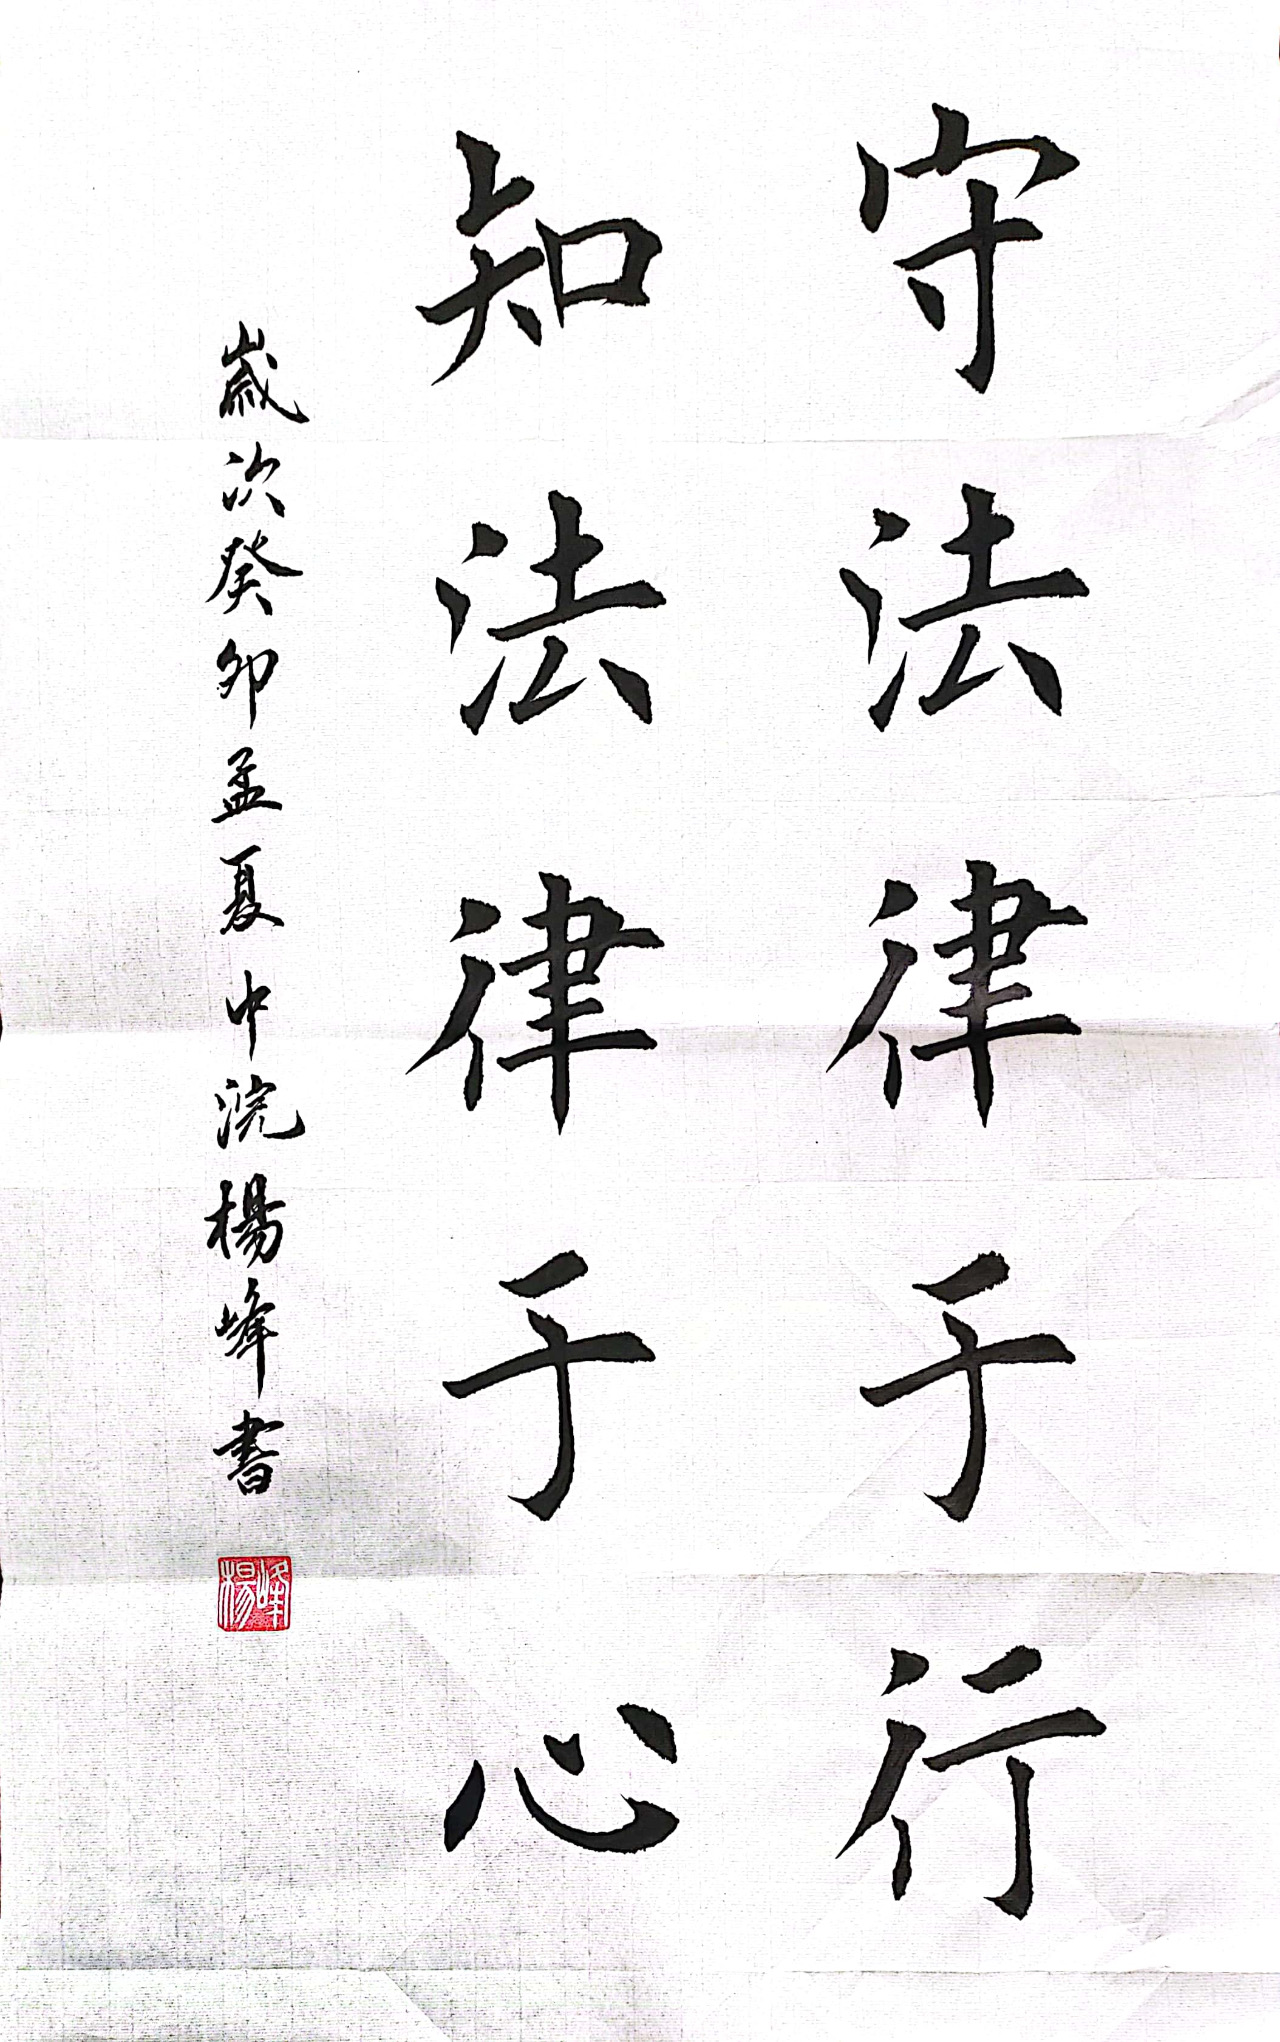 守法律于行
知法律于心
歲次癸卯孟夏中浣楊峰書
楊峰